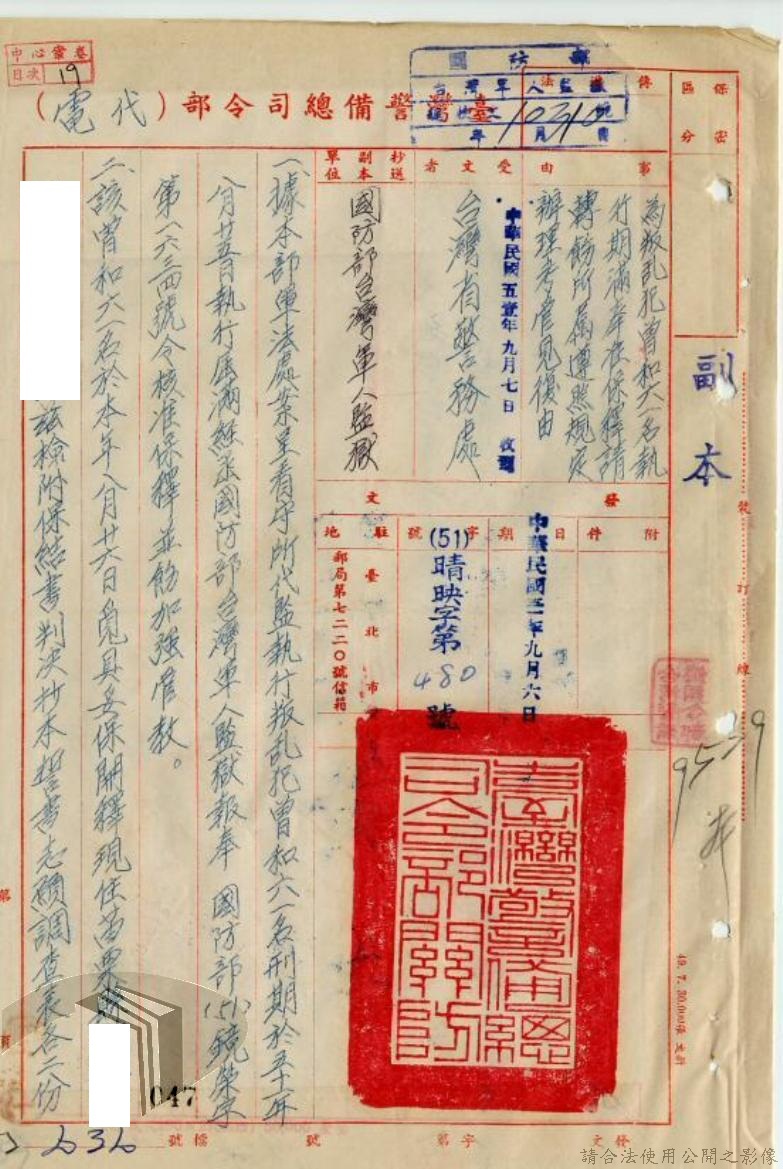 中心彙卷
目次 19
國防部
台灣軍人監獄
保密
區分
臺灣警備總司令部（代電）
副本
事由
為叛乱犯曾和六一名執
行期滿奉准保釋請
轉飭所属遵照規定
辦理考管見復由
中華民國五壹年九月七日 收到
受文者
台灣省警務處
抄送副本單位
國防部台灣軍人監獄
發文
附件
日期
中華民國五一年九月六日
字號
(51)晴映字第480號
駐地
臺北市
郵局第七二二〇號信箱
一、據本部軍法處案呈看守所代監執行叛乱犯曾和六一名刑期於五十一年
八月廿五日執行届滿經承國防部台灣軍人監獄報奉 國防部(51)鏡榮字
第一六三四號令核准保釋並飭加强管教。
二、該曾和六一名於本年八月廿六日覓具妥保開釋現住苗栗縣
茲檢附保結書判決抄本誓書志願調查表各二份
臺灣警備總
司令部關防
9529
裝訂線
047
2636
發文 字第 號 檔號
請合法使用公開之影像